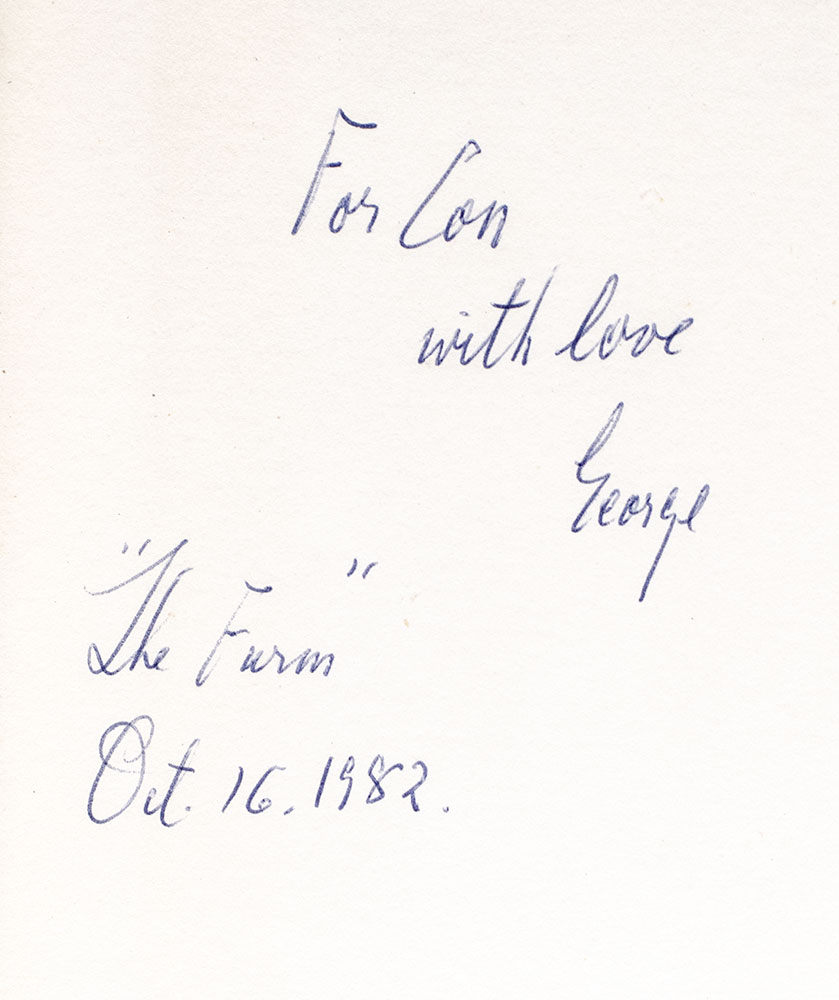 For Con
with love
George
"The Farm"
Oct. 16. 1982.